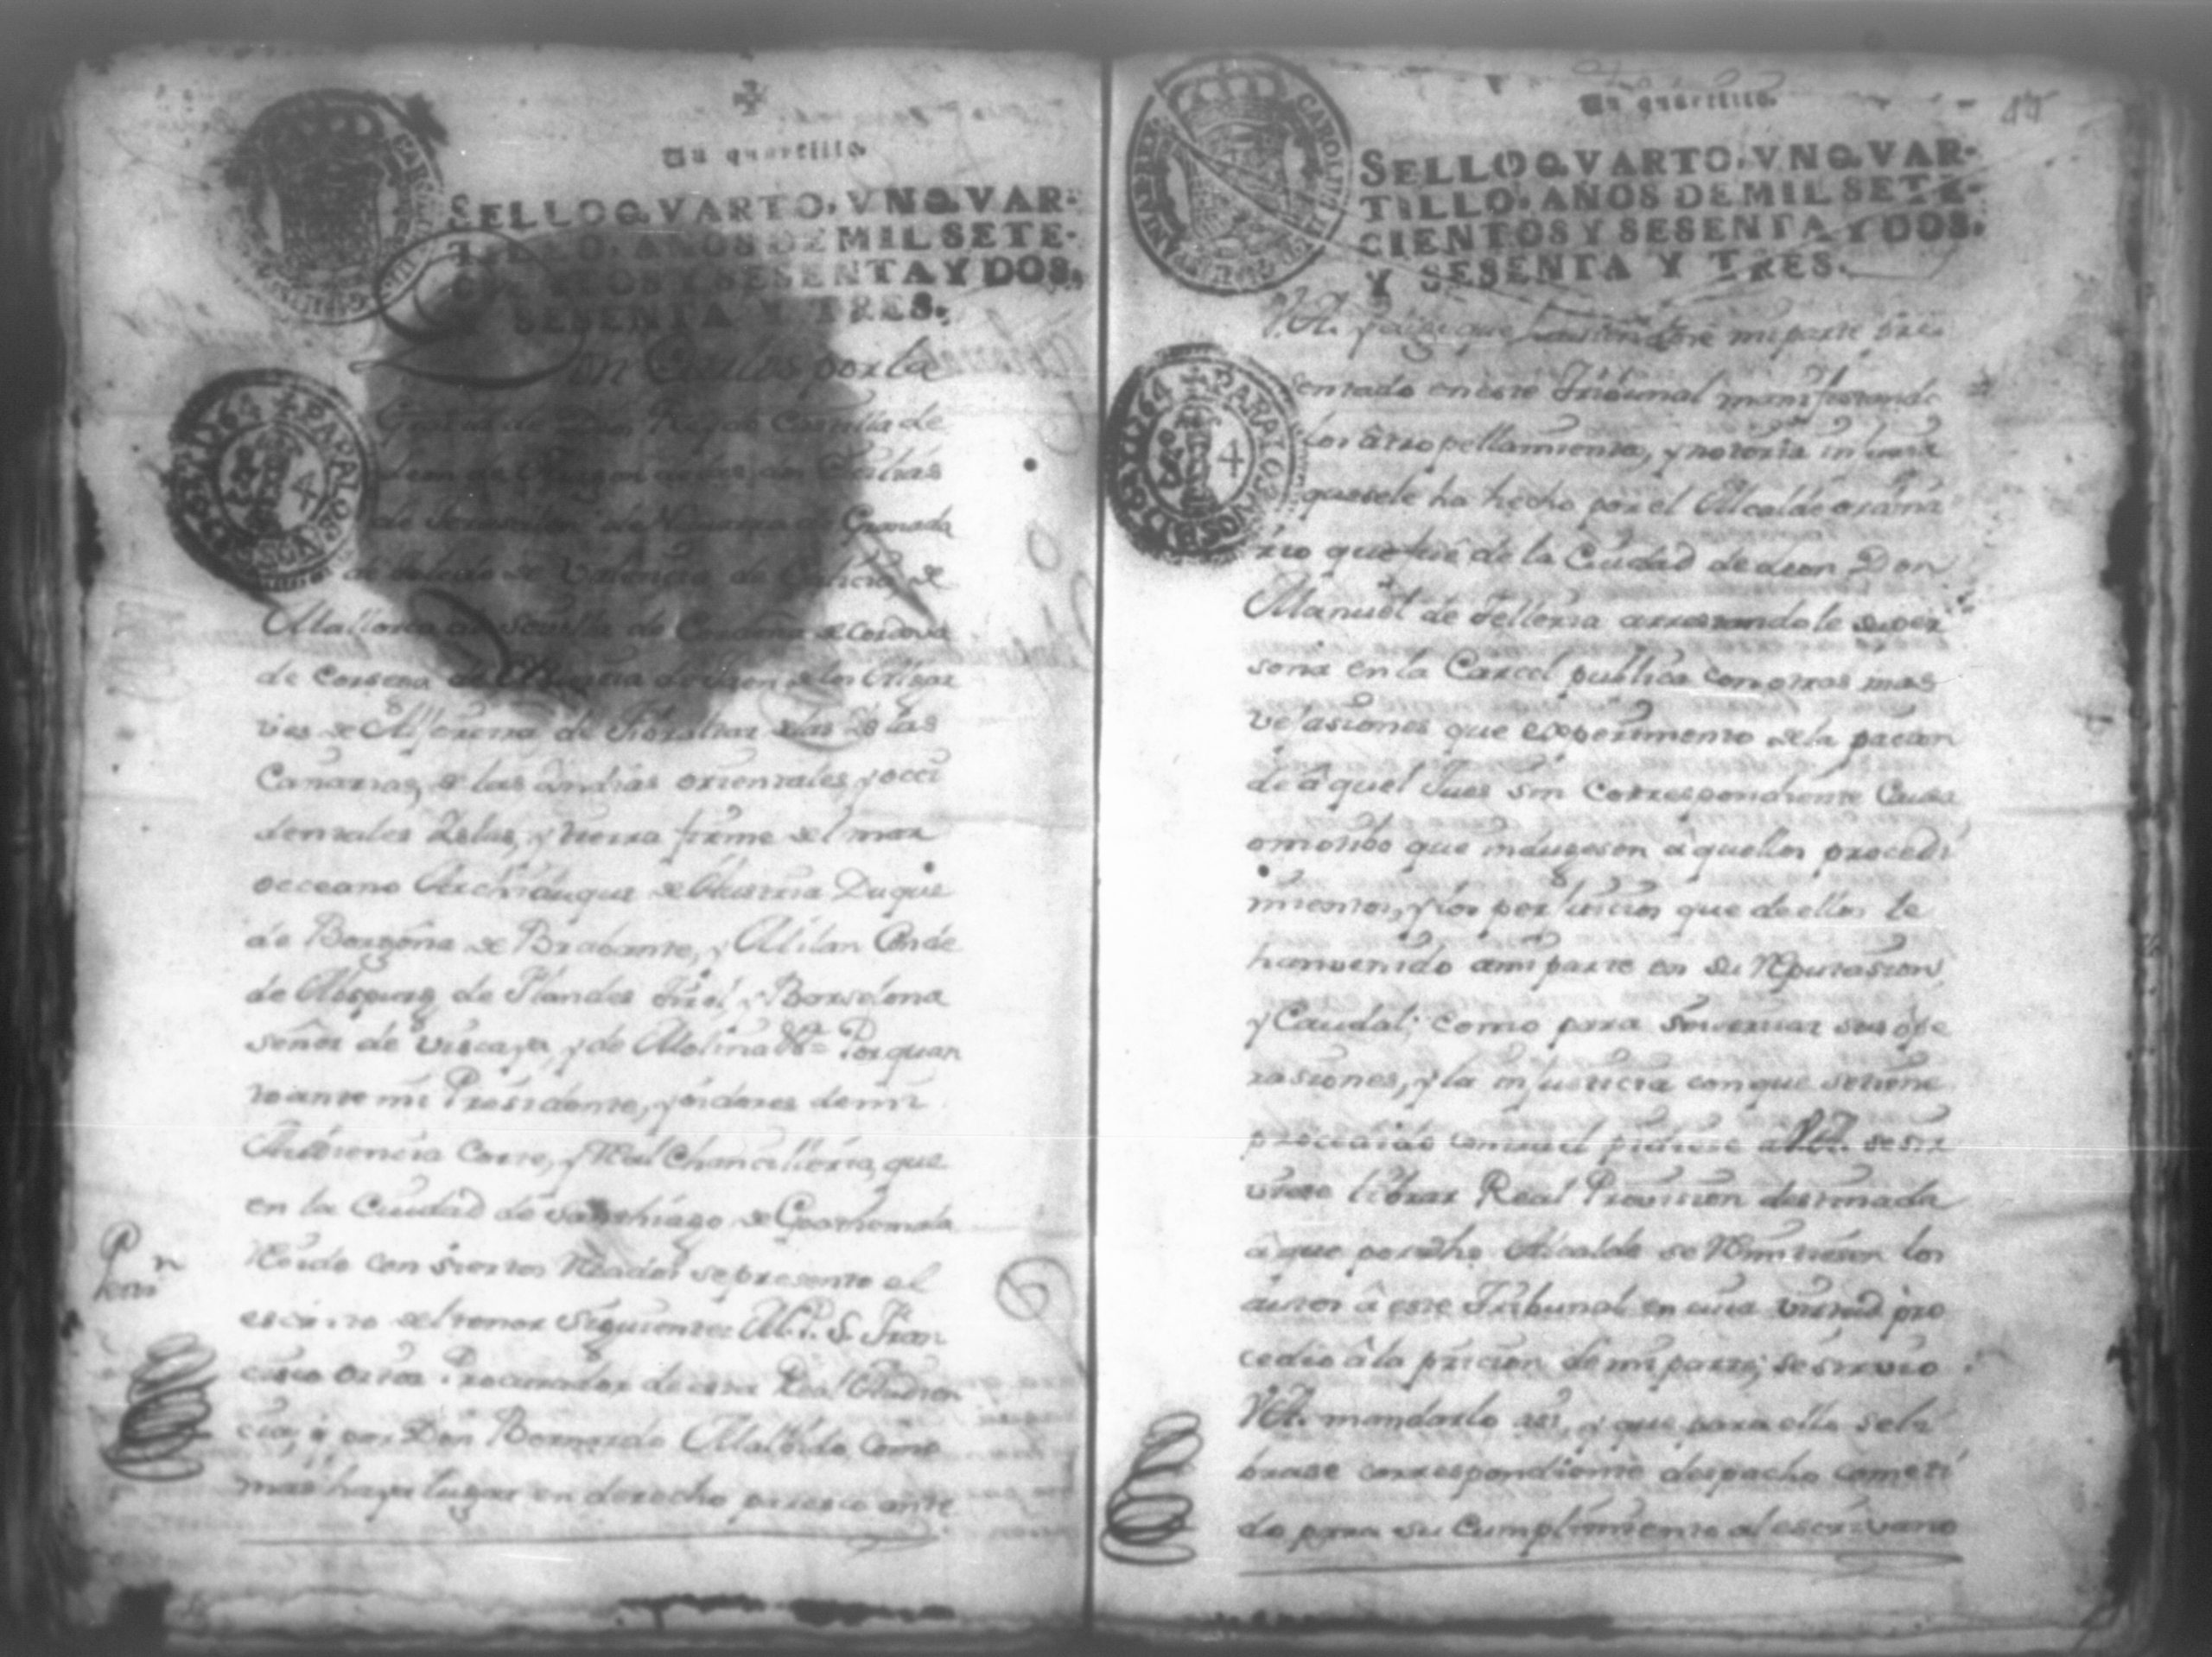 Un quartillo.
SELLO QVARTO, VN QVAR-
TILLO, AÑOS DE MIL SETE-
CIENTOS Y SESENTA Y DOS,
Y SESENTA Y TRES.
Don Carlos por la
Gracia de Dios Rey de Castilla de
Leon de Aragon de las dos Sicilias
de Jerusalen de Navarra de Granada
de Toledo de Valencia de Galicia, de
Mallorca de Sevilla de Cerdeña de Cordova
de Corsega de Murcia de Jaen de los Algar
ves de Algecira de Gibraltar de las Islas
Canarias, de las Indias orientales, y occi
dentales Islas, y tierra firme del mar
occeano Archiduque de Austria Duque
de Borgoña de Brabante, y Milan Conde
de Abspurg de Flandes Tirol, y Barselona
señor de Viscaya, y de Molina &a = Por quan
to ante mi Presidente, y oidores de mi
Audiencia Corte, y Real Chancilleria, que
en la Ciudad de Santhiago de Goathemala
Reside con siertos Reados se presento el
escrito del tenor siguiente: M. P. S. Fran
cisco Procurador de esta Real Audien
cia, y por Don Bernardo Maldo como
mas haya lugar en derecho paresco ante
P
n
4
1764 PARA LOS AÑOS DE
Un quartillo.
SELLO QVARTO, VN QVAR-
TILLO, AÑOS DE MIL SETE-
CIENTOS Y SESENTA Y DOS,
Y SESENTA Y TRES.
V.A. y digo que haviendose mi parte pre
sentado en este Tribunal manifestando
los atropellamientos, y notoria injuria
que se le ha hecho por el Alcalde ordina
rio que fue de la Ciudad de Leon Don
Manuel de Telleria arrestandole su per
sona en la Carcel publica con otras mas
vejasiones que experimento de la pacion
de aquel Jues sin correspondiente Causa
o motibo que indugesen a quellos procedi
mientos, y los perjuicios que de ellos le
han venido a mi parte en su Reputasion,
y Caudal; como para sus ope
rasiones, y la injusticia con que se tiene
procedido contra el pidiese a V.A. se sir
viese librar Real Provision destinada
a que por dho Alcalde se Remitiesen los
autos a este Tribunal en cuia virtud pro
cedio a la pricion de mi parte; se sirvio
V.A. mandarlo asi, y que para ello se li
brase correspondiente despacho cometi
do para su Cumplimiento al escrivano
4
1764 PARA LOS AÑOS DE